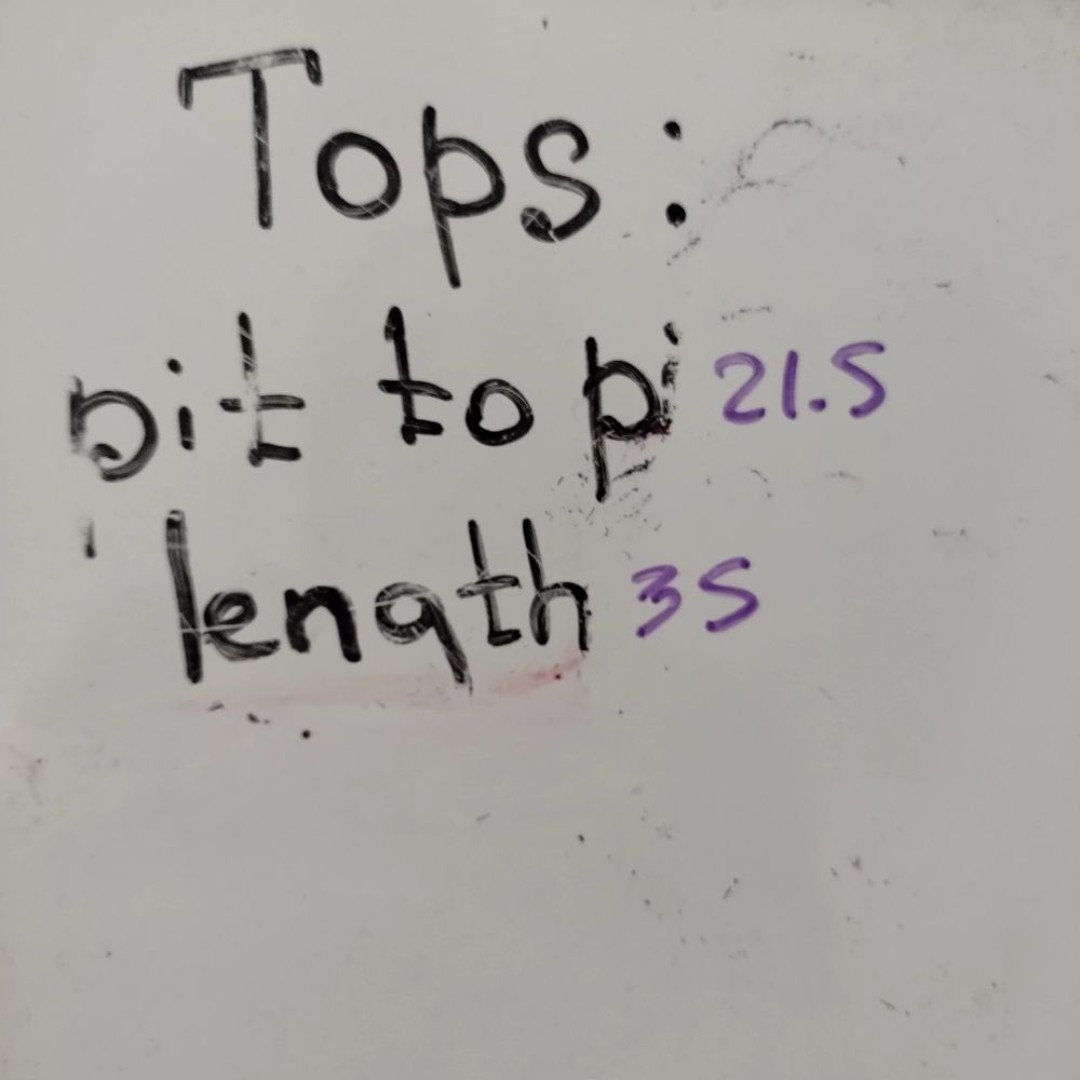 Tops:
pit to pi 21.5
length 35